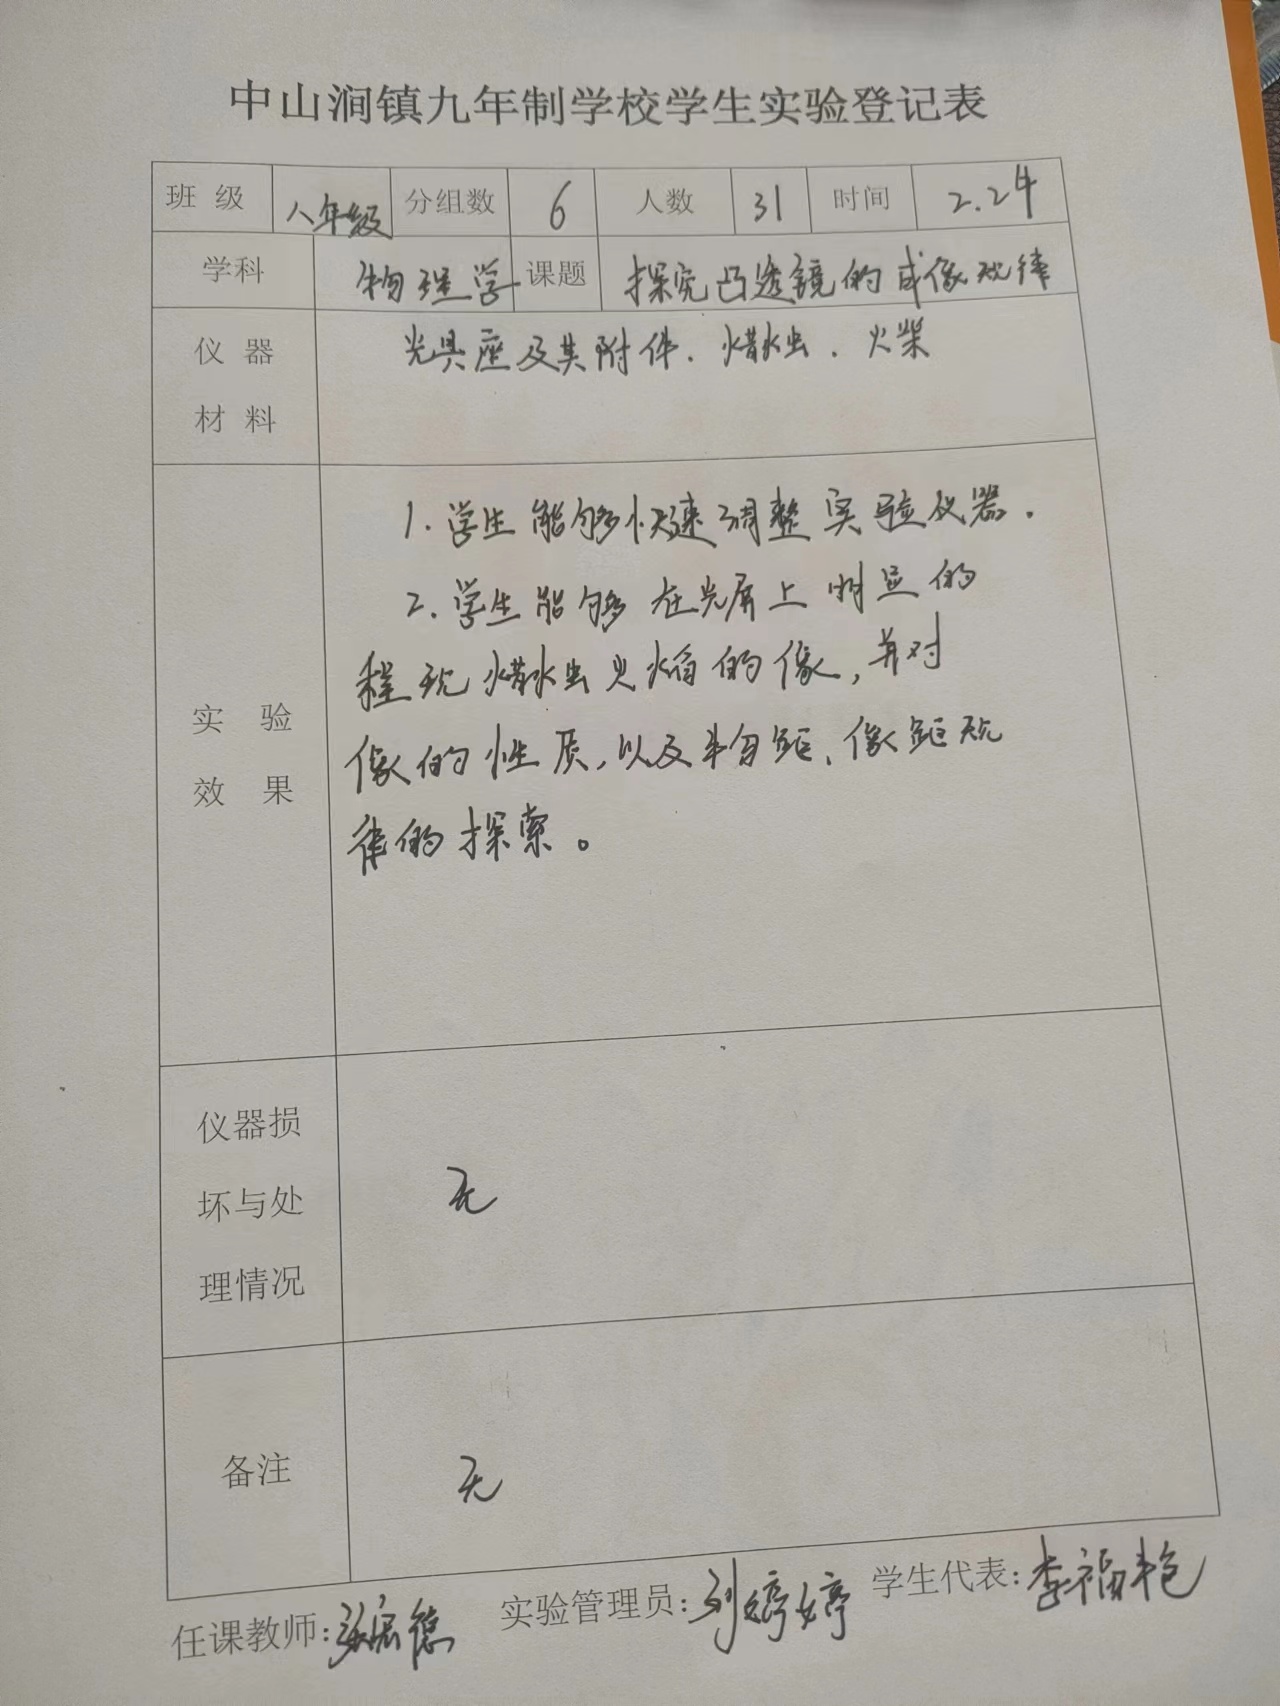 中山涧镇九年制学校学生实验登记表
班级 八年级 分组数 6 人数 31 时间 2.24
学科 物理学 课题 探究凸透镜的成像规律
仪器 光具座及其附件.蜡烛.火柴
材料
1.学生能够快速调整实验仪器.
2.学生能够在光屏上明显的
程现蜡烛火焰的像,并对
实验 像的性质,以及物距、像距规
效果 律的探索。
仪器损
坏与处 无
理情况
备注 无
任课教师: 实验管理员:刘婷婷 学生代表:李福艳